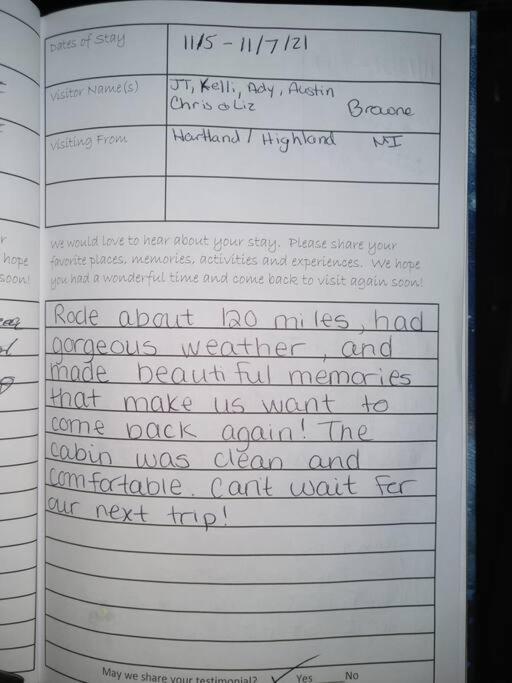 Dates of Stay 11/5 - 11/7/21
Visitor Name(s) JT, Kelli, Ady, Austin
Chris & Liz Browne
Visiting From Hartland / Highland MI
We would love to hear about your stay. Please share your
favorite places, memories, activities and experiences. We hope
you had a wonderful time and come back to visit again soon!
r
hope
soon!
Rode about 120 miles, had
gorgeous weather, and
made beautiful memories
that make us want to
come back again! The
cabin was clean and
comfortable. Can't wait for
our next trip!
May we share your testimonial? ✓ Yes No